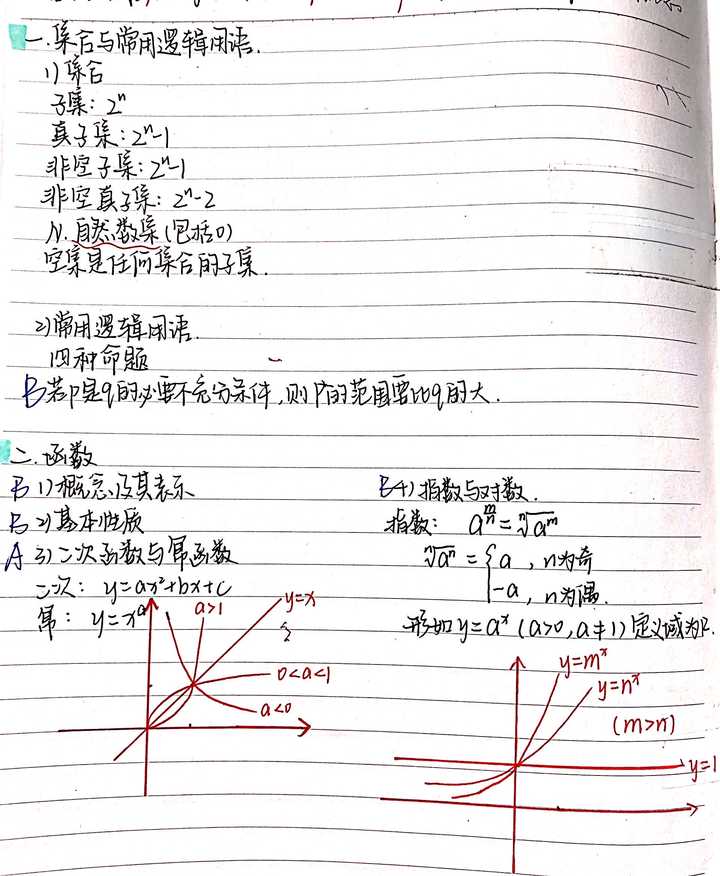 一.集合与常用逻辑用语.
1)集合
子集：2ⁿ
真子集：2ⁿ-1
非空子集：2ⁿ-1
非空真子集：2ⁿ-2
N.自然数集(包括0)
空集是任何集合的子集.
2)常用逻辑用语.
四种命题
B若p是q的必要不充分条件,则P的范围要比q的大.
二.函数
B 1)概念及其表示
B 2)基本性质
A 3)二次函数与幂函数
二次：y=ax²+bx+c
幂：y=xᵃ
a>1
y=x
0<a<1
a<0
B4)指数与对数.
指数： a^(m/n)=ⁿ√aᵐ
ⁿ√aⁿ={a，n为奇
-a，n为偶.
形如y=aˣ(a>0,a≠1)定义域为R.
y=mˣ
y=nˣ
(m>n)
y=1